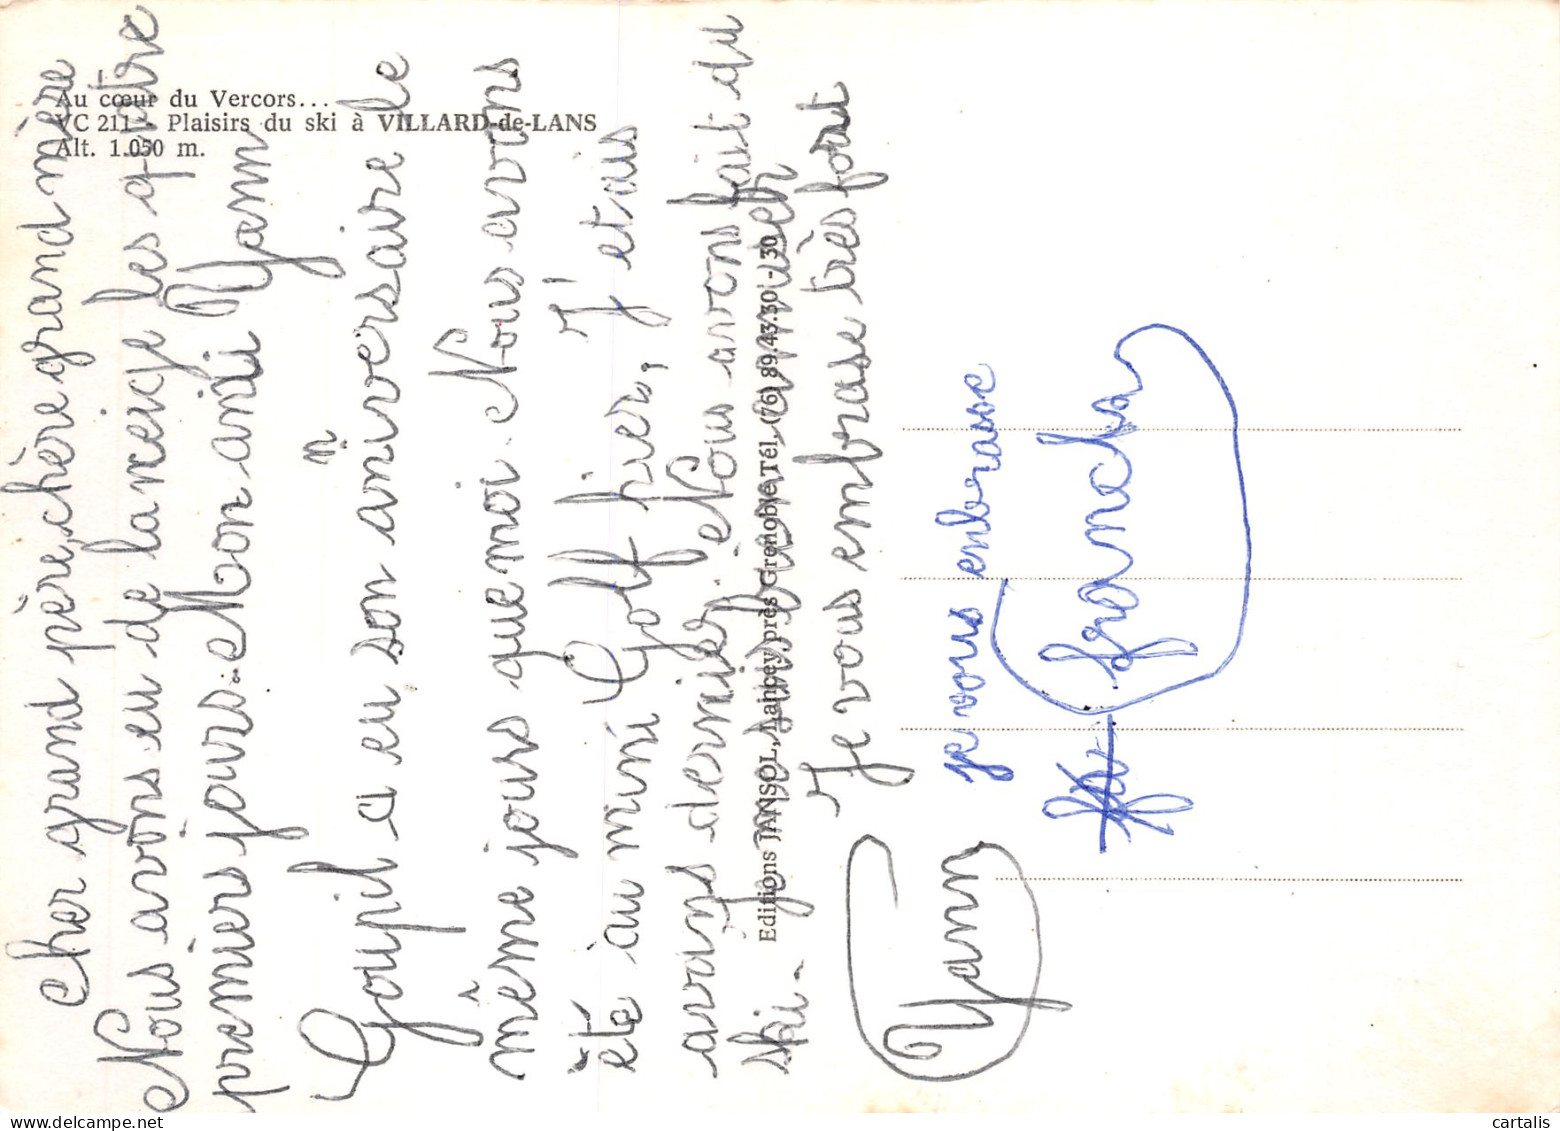 Au cœur du Vercors...
VC 211 - Plaisirs du ski à VILLARD-de-LANS
Alt. 1.050 m.
Cher grand père, chère grand mère
Nous avons eu de la neige les quatre
premiers jours. Mon ami Yann
Goupil a eu son anniversaire le
même jours que moi. Nous avons
été au mini Golf hier, J'etais
avant dernier. Nous avons fait du
ski.
Je vous embrase très fort
Yann
Editions JANSOL, Lancey près Grenoble Tél. (76) 89.43.30 - 30
je vous enbrasse
franck
cartalis